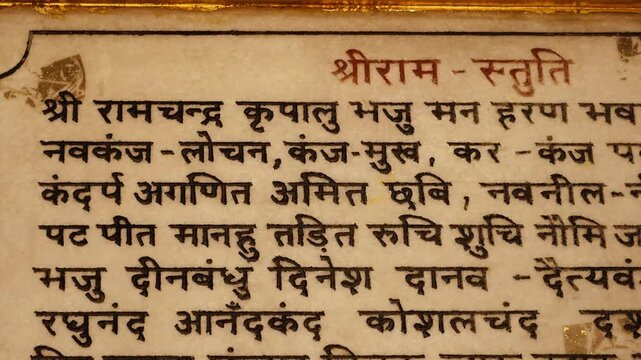 श्रीराम - स्तुति
श्री रामचन्द्र कृपालु भजु मन हरण भव
नवकंज - लोचन, कंज-मुख, कर - कंज प
कंदर्प अगणित अमित छवि, नवनील-
पट पीत मानहु तड़ित रुचि शुचि नौमि ज
भजु दीनबंधु दिनेश दानव - दैत्यवं
रघुनंद आनँदकंद कोशलचंद दश